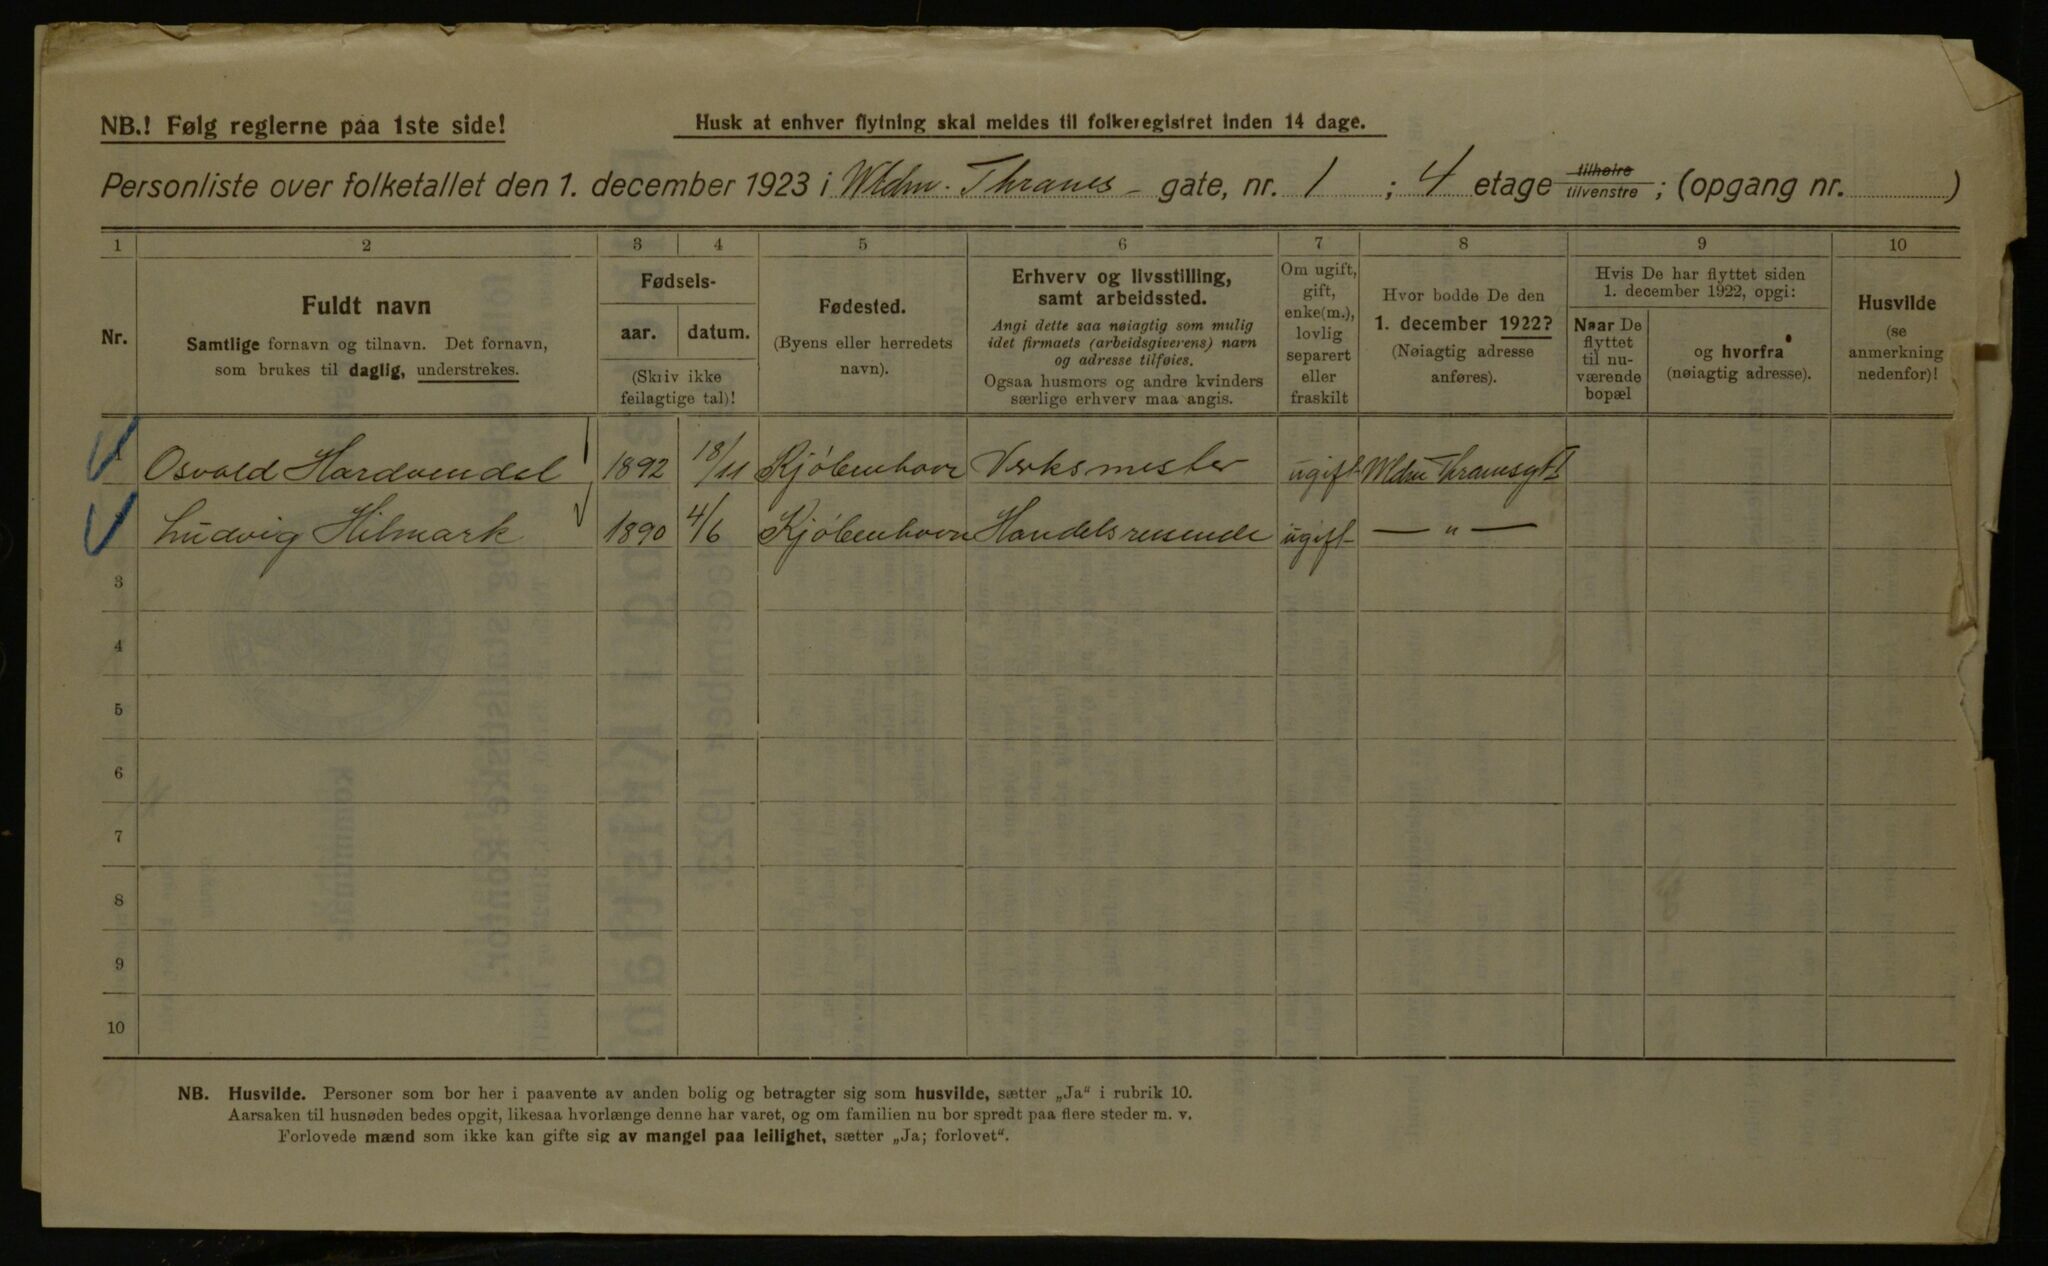 NB.! Følg reglerne paa 1ste side!
Husk at enhver flytning skal meldes til folkeregistret inden 14 dage.
Personliste over folketallet den 1. december 1923 i Wldm. Thranes - gate, nr. 1 ; 4 etage tilhøire tilvenstre ; (opgang nr. )
1 2 3 4 5 6 7 8 9 10
Nr.
Fuldt navn
Samtlige fornavn og tilnavn. Det fornavn,
som brukes til daglig, understrekes.
Fødsels-
aar. datum.
(Skriv ikke
feilagtige tal)!
Fødested.
(Byens eller herredets
navn).
Erhverv og livsstilling,
samt arbeidssted.
Angi dette saa nøiagtig som mulig
idet firmaets (arbeidsgiverens) navn
og adresse tilføies.
Ogsaa husmors og andre kvinders
særlige erhverv maa angis.
Om ugift,
gift,
enke(m.),
lovlig
separert
eller
fraskilt
Hvor bodde De den
1. december 1922?
(Nøiagtig adresse
anføres).
Hvis De har flyttet siden
1. december 1922, opgi:
Naar De
flyttet
til nu-
værende
bopæl
og hvorfra
(nøiagtig adresse).
Husvilde
(se
anmerkning
nedenfor)!
Osvald Hardvendel 1892 18/11 Kjøbenhavn Verksmester ugift Wldm Thranesgt 1
Ludvig Hilmark 1890 4/6 Kjøbenhavn Handelsreisende ugift — " —
3
4
5
6
7
8
9
10
NB. Husvilde. Personer som bor her i paavente av anden bolig og betragter sig som husvilde, sætter „Ja“ i rubrik 10.
Aarsaken til husnøden bedes opgit, likesaa hvorlænge denne har varet, og om familien nu bor spredt paa flere steder m. v.
Forlovede mænd som ikke kan gifte sig av mangel paa leilighet, sætter „Ja; forlovet“.